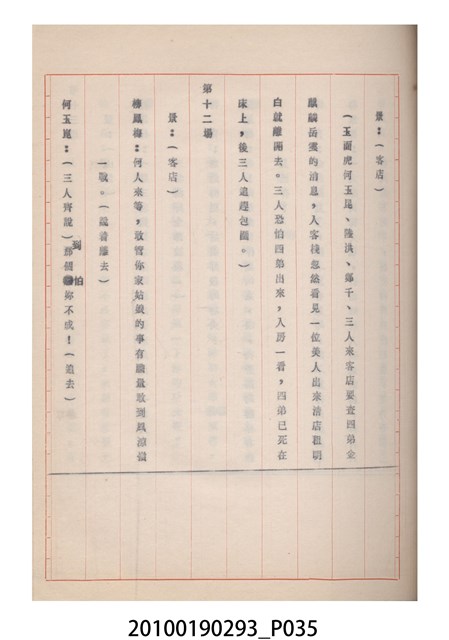 景：（客店）
（玉面虎何玉崑、陸洪、鄒千、三人來客店要查四弟金
麒麟岳雯的消息，入客棧忽然看見一位美人出來清店租明
白就離開去。三人恐怕四弟出來，入房一看，四弟已死在
床上，後三人追趕包圍。）
第十二場
景：（客店）
樓鳳梅：何人來等，敢管你家姑娘的事有膽量敢到鳳涼儀
一敬。（說著離去）
何玉崑：（三人齊說）到那個怕妳不成！（追去）
20100190293_P035